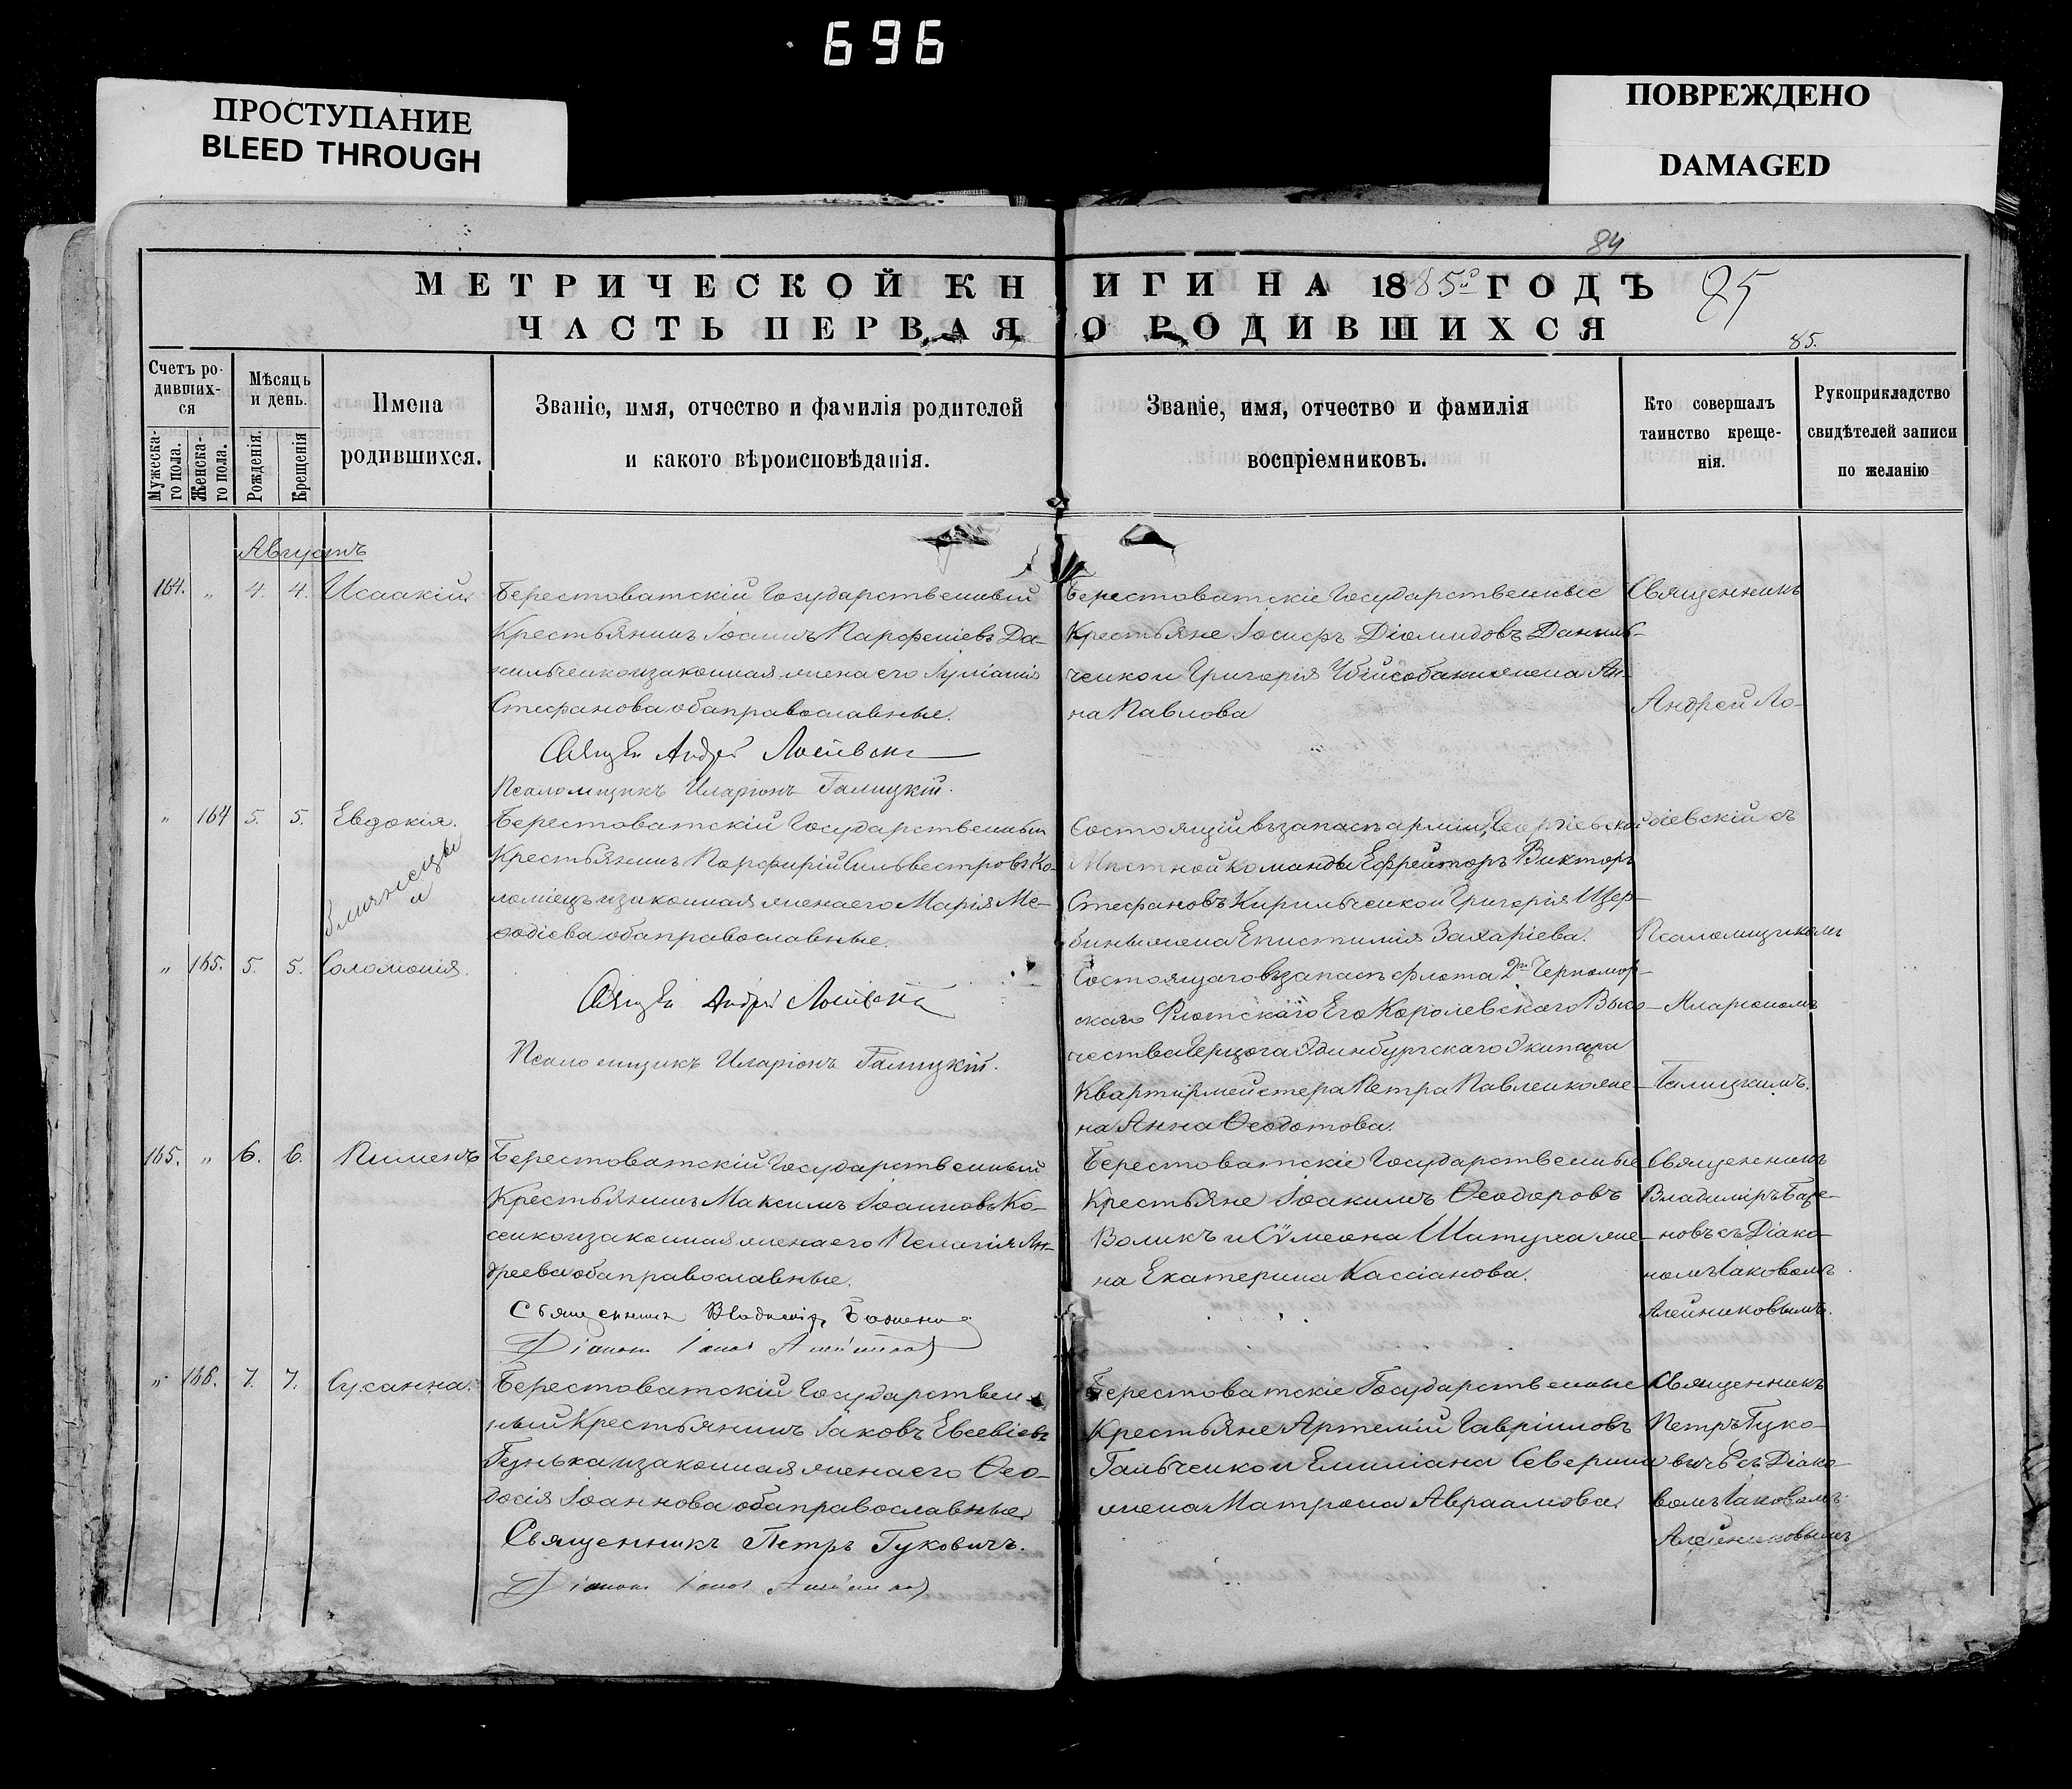 696
ПРОСТУПАНИЕ
BLEED THROUGH
ПОВРЕЖДЕНО
DAMAGED
84
МЕТРИЧЕСКОЙ КНИГИ НА 1885й ГОДЪ
ЧАСТЬ ПЕРВАЯ О РОДИВШИХСЯ
85.
Счетъ ро-
дивших-
ся
Мужеска-
го пола.
Женска-
го пола.
Мѣсяць
и день.
Рожденія.
Крещенія
Имена
родившихся.
Званіе, имя, отчество и фамилія родителей
и какого вѣроисповѣданія.
Званіе, имя, отчество и фамилія
воспріемниковъ.
Кто совершалъ
таинство креще-
нія.
Рукоприкладство
свидѣтелей записи
по желанію
Августъ
164. „ 4. 4. Исаакій
Берестоватскій Государственный
Крестьянинъ Іоаннъ Парфеніевъ Да-
нильченко и законная жена его Іуліанія
Стефанова оба православные.
Псаломщикъ Иларіонъ Галицкій.
Берестоватскіе Государственные
Крестьяне Іосифъ Діомидовъ Даниль-
ченко и Григорія Убійсобаки жена Ан-
на Павлова
Священникъ
Андрей Ло-
„ 164 5. 5. Евдокія.
Близнецы
и
Берестоватскій Государственный
Крестьянинъ Порфирій Сильвестровъ Ко-
ломіецъ и законная жена его Марія Ме-
ѳодіева оба православные.
Состоящій въ запасѣ арміи, Георгіевской
Мѣстной команды Ефрейторъ Викторъ
Стефановъ Кирильченко и Григорія Щер-
бины жена Епистимія Захаріева.
Псаломщикомъ
„ 165. 5. 5. Соломонія.
Псаломщикъ Иларіонъ Галицкій.
Состоящаго въ запасѣ флота 2го Черномор-
скаго Флотскаго Его Королевскаго Высо-
чества Герцога Эдинбургскаго Экипажа
Квартирмейстера Петра Павленко же-
на Анна Ѳеодотова.
Иларіономъ
Галицкимъ.
165. „ 6. 6. Пименъ
Берестоватскій Государственный
Крестьянинъ Максимъ Іоанновъ Ко-
сенко и законная жена его Пелагія Ан-
дреева оба православные.
Берестоватскіе Государственные
Крестьяне Іоакимъ Ѳеодоровъ
Воликъ и Сѵмеона Шатуха же-
на Екатерина Кассіанова.
Священникъ
Владиміръ Баже-
новъ съ Діако-
номъ Іаковомъ
Алейниковымъ.
„ 166. 7. 7. Сусанна.
Берестоватскій Государствен-
ный Крестьянинъ Іаковъ Евсевіевъ
Гунька и законная жена его Ѳео-
досія Іоаннова оба православные
Священникъ Петръ Гуковичъ.
Берестоватскіе Государственные
Крестьяне Артемій Гавріиловъ
Гальченко и Емиліана Северина
жена Матрона Авраамова.
Священникъ
Петръ Гуко-
вичъ съ Діако-
номъ Іаковомъ
Алейниковымъ